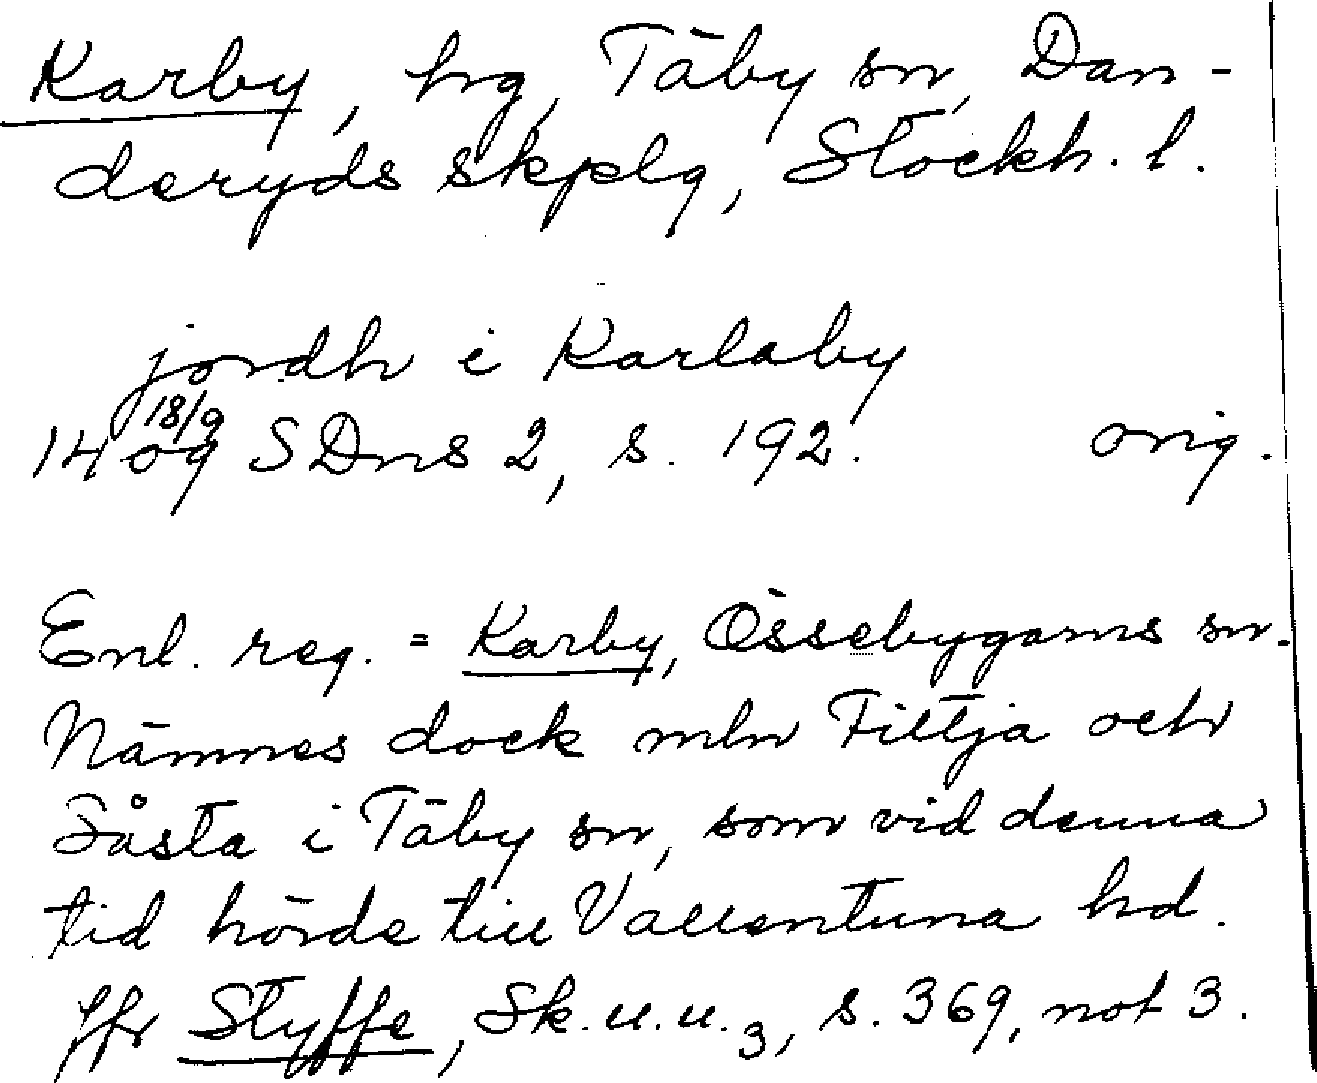 Karby, hg, Täby sn, Dan-
deryds skplg, Stockh. l.
jordh i Karlaby
14 18/9 09 SDns 2, s. 192. orig.
Enl. reg. = Karby, Össebygarns sn.
Nämnes dock mln Fittja och
Såsta i Täby sn, som vid denna
tid hörde till Vallentuna hd.
Jfr Styffe, Sk.u.u.3, s. 369, not 3.